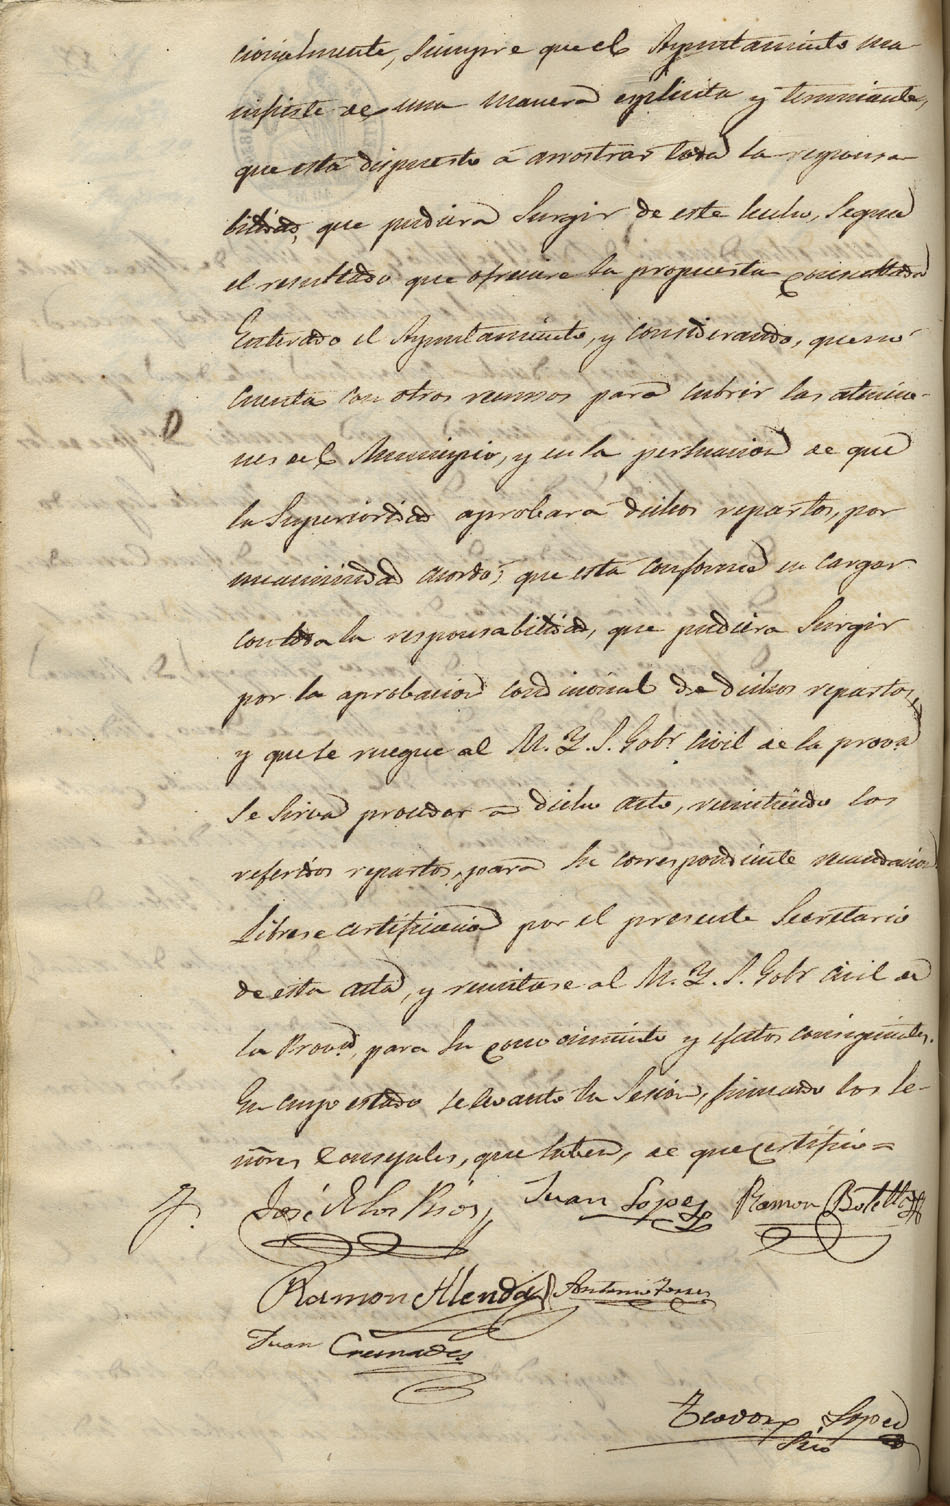 cionalmente, siempre que el Ayuntamiento ma-
nifieste de una manera esplicita y terminante,
que está dispuesto á arrostrar toda la reponsa-
bilidad, que pudiera surgir de este hecho, segun
el resultado que ofreciere la propuesta consultada
Enterado el Ayuntamiento, y considerando, que nó
cuenta con otros recursos para cubrir las atencio-
nes del Municipio, y en la persuacion de que
la Superioridad aprobará dichos repartos, por
unanimidad acordó; que está conforme en cargar
con toda la responsabilidad, que pudiera surgir
por la aprobacion condicional de dichos repartos,
y que se ruegue al M. Y. S. Gobr. Civil de la prova.
se sirva proceder á dicho acto, remitiendo los
referidos repartos, para su correspondiente recaudacion.
Librese certificacion por el presente Secretario
de esta acta, y remitase al M. Y. S. Gobr. Civil de
la Prova. para su conocimiento y efectos consiguientes.
En cuyo estado se levantó la Sesion, firmando los Se-
ñores Consejales, que saben, de que certifico =
José de los Rios Juan Lopez Ramon Botella
Ramon Alenda Antonio Torres
Juan Cremades
Teodoro Lopez
Srio